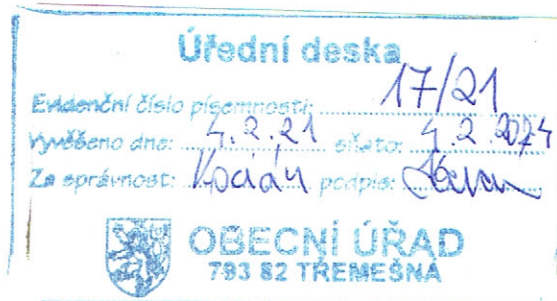 Úřední deska
Evidenční číslo písemnosti: 17/21
Vyvěšeno dne: 4.2.21 sňato: 4.2.2024
Za správnost: Kocián podpis:
OBECNÍ ÚŘAD
793 82 TŘEMEŠNÁ